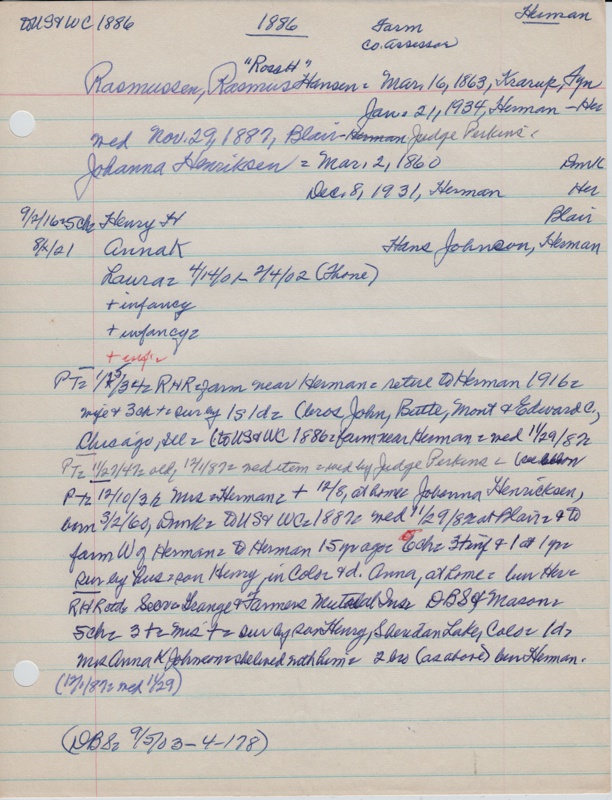 TO US & WC 1886 1886 Farm Herman
Co. Assessor
"Ross H"
Rasmussen, Rasmus Hansen = Mar. 16, 1863, Krarup, Fyn
Jan. 21, 1934, Herman - Her
wed Nov. 29, 1887, Blair - Herman Judge Perkins =
Johanna Henriksen = Mar. 2, 1860 Dmk
Dec. 8, 1931, Herman Her
9/2/16 = 5 ch = Henry H Blair
8/2/21 Anna K Hans Johnson, Herman
Laura = 4/14/01 - 2/4/02 (Thone)
+ infancy
+ infancy =
+ inf =
PT = 1/25/34 = RHR = farm near Herman = retire to Herman 1916 =
wife & 3 ch + = sur by 1s 1d = (bros John, Butte, Mont & Edward C,
Chicago, Ill = (to US & WC 1886 = farm near Herman = wed 11/29/87 =
PT = 11/27/47 = 12/1/87 = wed item = wed by Judge Perkins =
PT = 12/10/31 Mrs = Herman = + 12/8, at home Johanna Henricksen,
born 3/2/60, Dmk = TO US & WC = 1887 = wed 11/29/87 at Blair = & to
farm W of Herman = to Herman 15 yr ago = 6 ch = 3 + inf & 1 at 1 yr =
sur by hus = son Henry in Color & d. Anna, at home = bur Her =
RHR Grange & Farmers Mutual Ins = DBS & Mason =
5 ch = 3 + = Mrs + = sur by son Henry, Sheridan Lake, Colo = 1d =
Mrs Anna K Johnson = she lived with him = 2 bro (as above) bur Herman.
(12/1/87 = wed 11/29)
(DBS = 9/5/03 - 4 - 178)